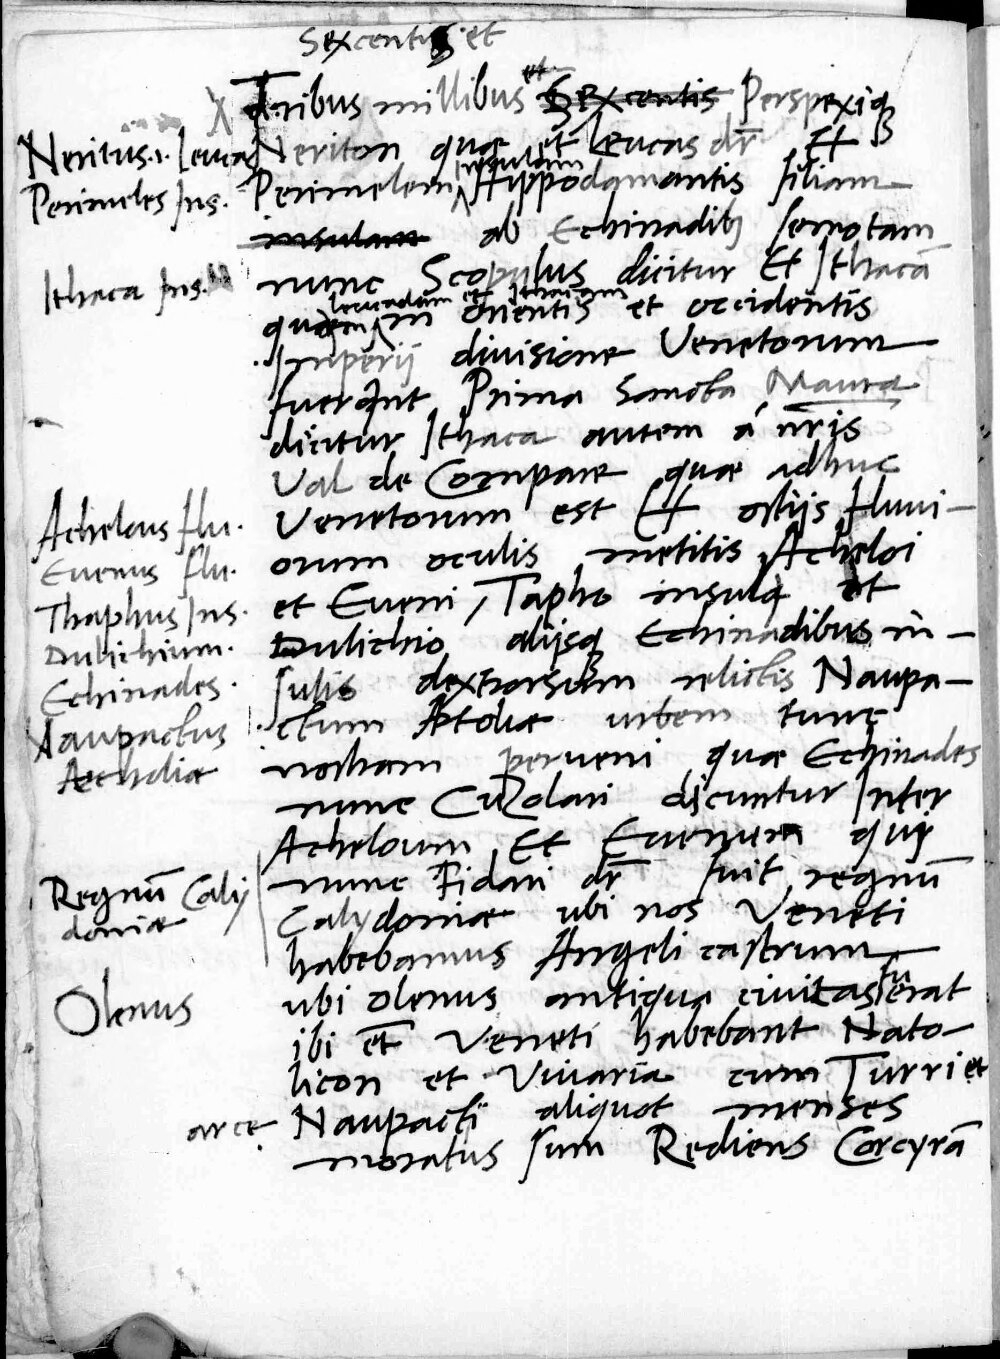 Sexcentis et
Tribus millibus et Sexcentis Perspexiq
Neritus .i. Leucas Neriton quae et Leucas dr̄ Et
insulam
Perimeles Ins. Perimelem Hippodamantis filiam
insulam ab Echinadibꝫ semotam
nunc Scopulus dicitur Et Ithacā
Ithaca Ins.
Leucadam et Ithacam
in orientis et occidentis
Imperii divisione Venetorum
fuerunt Prima Sancta Maura
dicitur Ithaca autem á nr̄is
Val de Compare quae adhuc
Achelous flu. Venetorum est Et ostijs fluvi-
Evenus flu. orum oculis metitis Acheloi
Thaphus Ins. et Eveni, Tapho insula et
Dulichium. Dulichio alijsq Echinadibus in-
Echinades. sulis dextrorsum relictis Naupa-
Naupactus ctum Aetoliae urbem tunc
Aetholiae nostram perveni quae Echinades
nunc Cuzolari dicuntur Inter
Acheloum Et Evenum qui
Regnū Caly nunc Fidari dr̄ fuit regnū
doniae Calydoniae ubi nos Veneti
habebamus Angeli castrum
Olenus ubi Olenus antiqua civitas fuerat
ibi et̄ Veneti habebant Nato-
licon et Vivaria cum Turri et
arce Naupacti aliquot menses
moratus sum Rediens Corcyrā